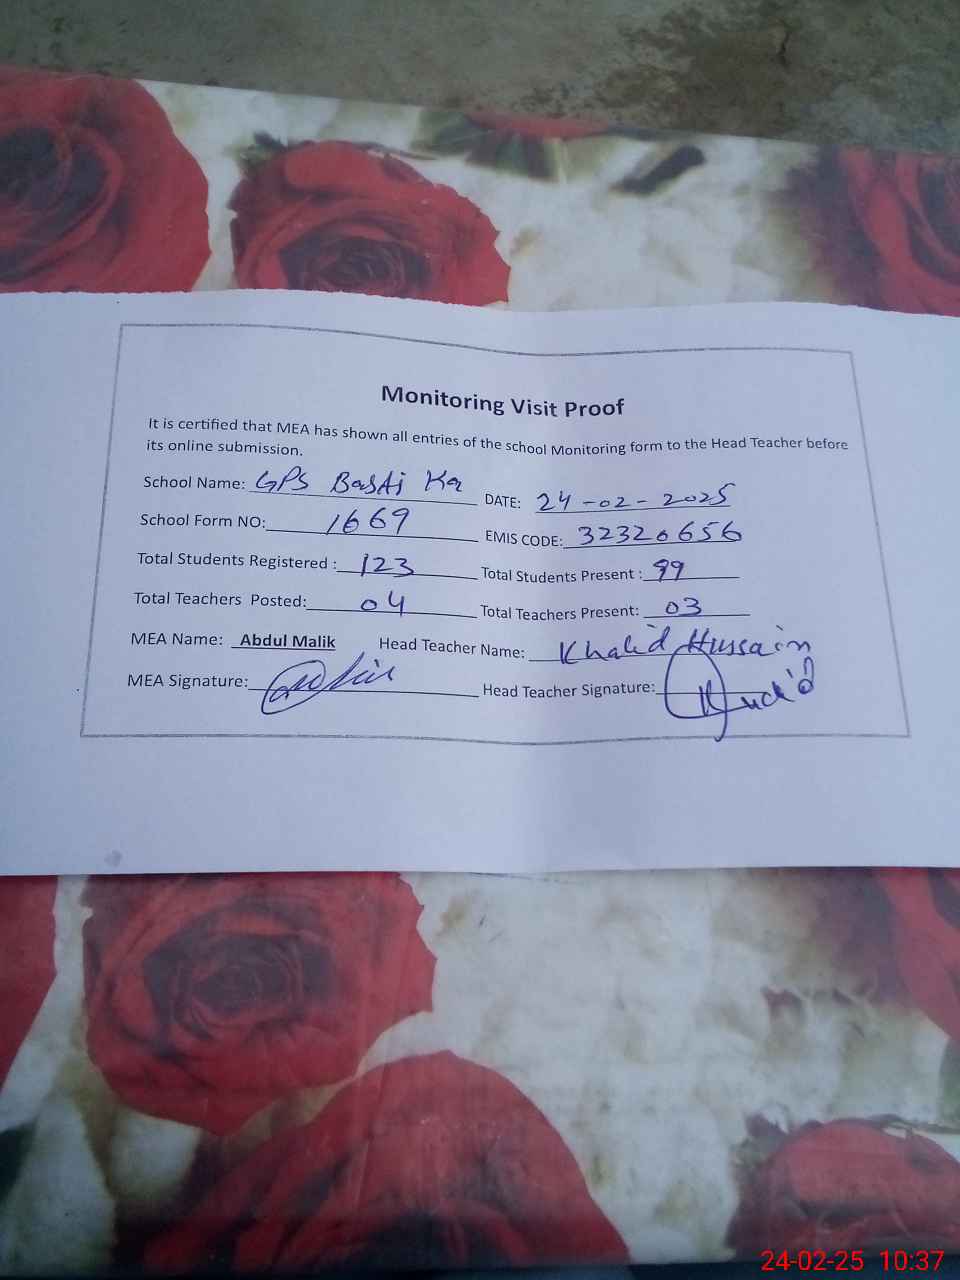 Monitoring Visit Proof
It is certified that MEA has shown all entries of the school Monitoring form to the Head Teacher before
its online submission.
School Name: GPS Basti Ka DATE: 24-02-2025
School Form NO: 1669 EMIS CODE: 32320656
Total Students Registered : 123 Total Students Present : 99
Total Teachers Posted: 04 Total Teachers Present: 03
MEA Name: Abdul Malik Head Teacher Name: Khalid Hussain
MEA Signature: Head Teacher Signature:
24-02-25 10:37